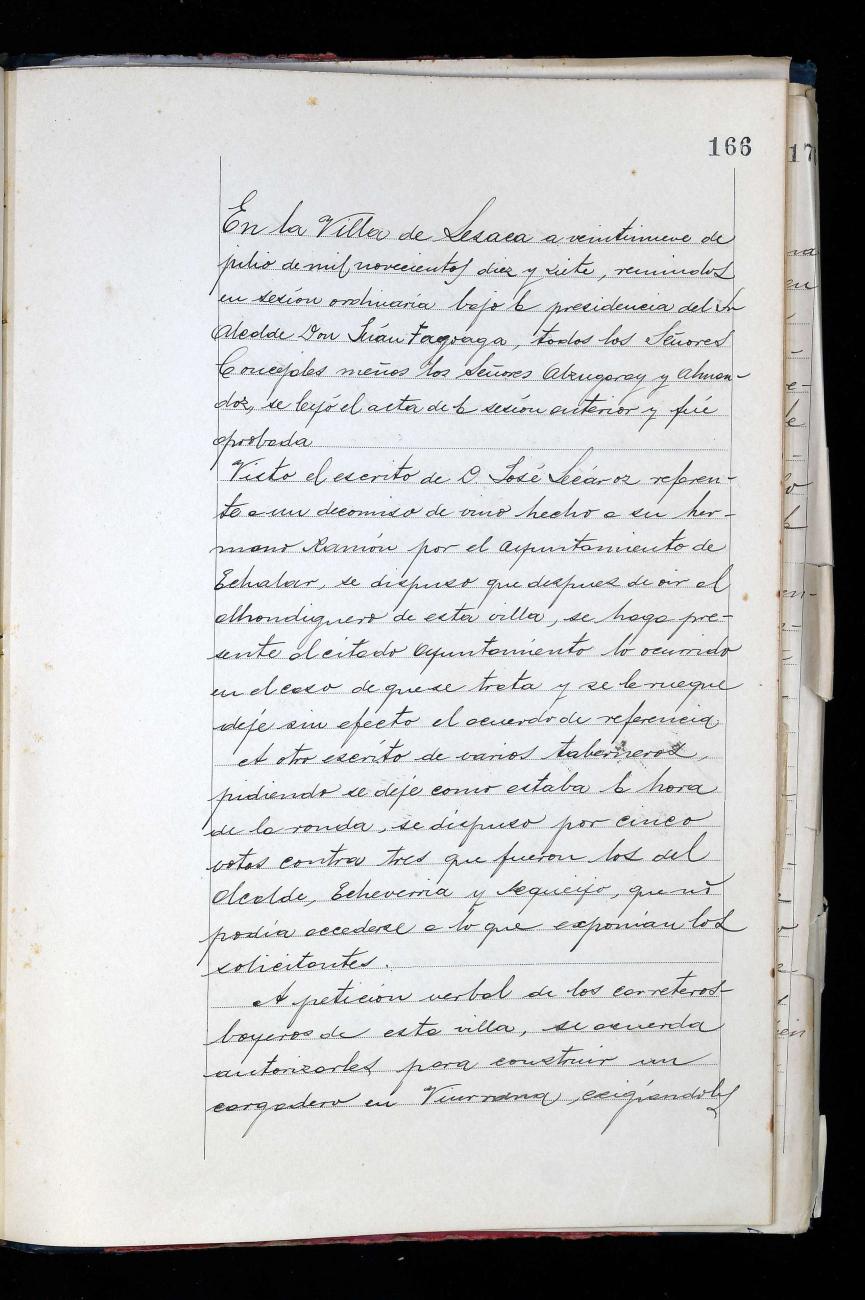 166
En la Villa de Lesaca a veintinueve de
julio de mil novecientos diez y siete, reunidos
en sesión ordinaria bajo la presidencia del Sr
Alcalde Don Juán Fagoaga, todos los Señores
Concejales menos los Señores Alzugaray y Alman-
doz, se leyó el acta de la sesión anterior y fué
aprobada
Visto el escrito de D José Lecároz referen-
te a un decomiso de vino hecho a su her-
mano Ramón por el Ayuntamiento de
Echalar, se dispuso que despues de oir al
alhondiguero de esta villa, se haga pre-
sente al citado Ayuntamiento lo ocurrido
en el caso de que se trata y se le ruegue
deje sin efecto el acuerdo de referencia
A otro escrito de varios taberneros,
pidiendo se deje como estaba la hora
de la ronda, se dispuso por cinco
votos contra tres que fueron los del
Alcalde, Echeverria y Requeijo, que no
podía accederse a lo que exponían los
solicitantes.
A petición verbal de los carreteros
boyeros de esta villa, se acuerda
autorizarles para construir un
cargadero en exigiéndoles
17